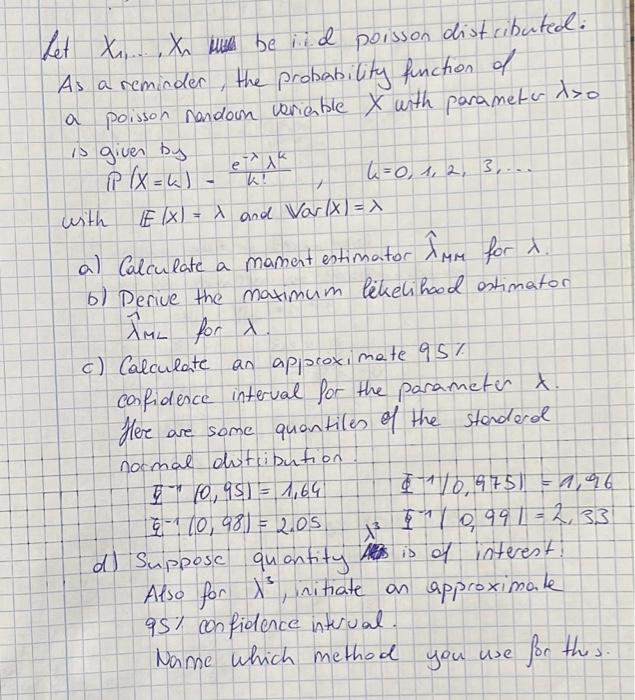 Let X₁,..., Xₙ be i.i.d poisson distributed.
As a reminder, the probability function of
a poisson random variable X with parameter λ>0
is given by
P(X=k) = e^-λ λ^k / k! , k=0, 1, 2, 3, ...
with E(X) = λ and Var(X) = λ
a) Calculate a moment estimator λ̂_MM for λ.
b) Derive the maximum likelihood estimator
λ̂_ML for λ.
c) Calculate an approximate 95%
confidence interval for the parameter λ.
Here are some quantiles of the standard
normal distribution.
Φ⁻¹(0,95) = 1,64 Φ⁻¹(0,975) = 1,96
Φ⁻¹(0,98) = 2.05 Φ⁻¹(0,99) = 2,33
d) Suppose quantity λ³ is of interest.
Also for λ³, initiate an approximate
95% confidence interval.
Name which method you use for this.